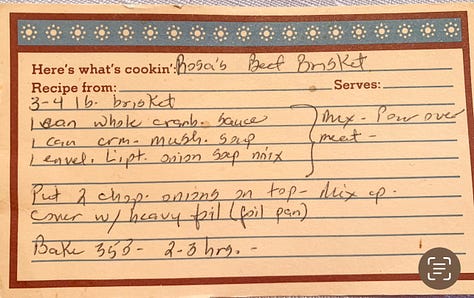 Here's what's cookin': Rosa's Beef Brisket
Recipe from: Serves:
3-4 lb. brisket
1 can whole cranb. sauce
1 can crm. mush. soup
1 envel. Lipt. onion soup mix
Mix - Pour over
meat -
Put 2 chop. onions on top - Mix up.
Cover w/ heavy foil (foil pan)
Bake 350 - 2-3 hrs. -